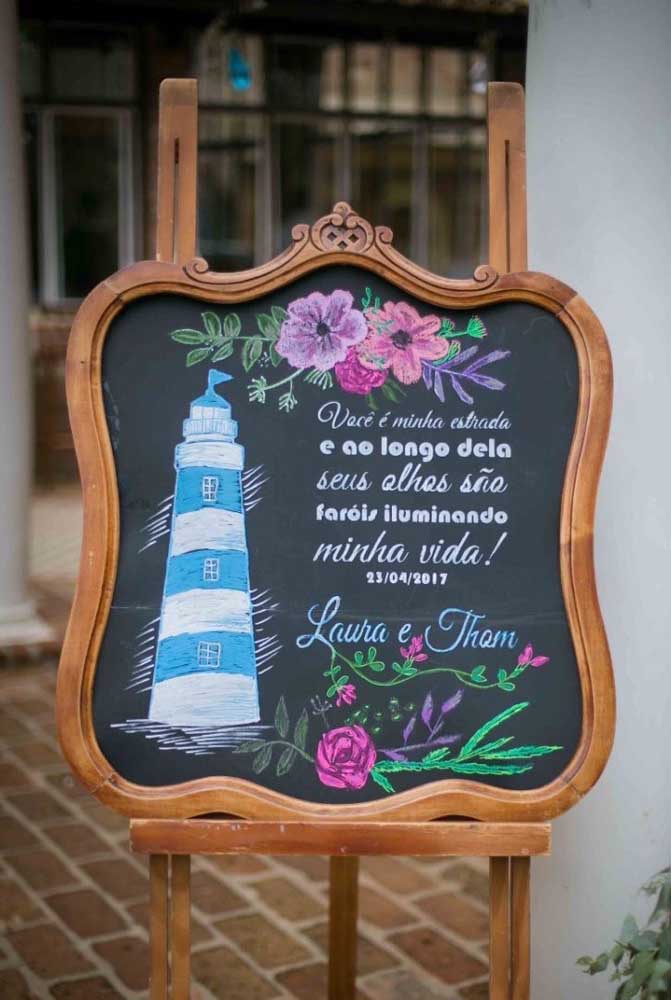 Você é minha estrada
e ao longo dela
seus olhos são
faróis iluminando
minha vida!
23/04/2017
Laura e Thom